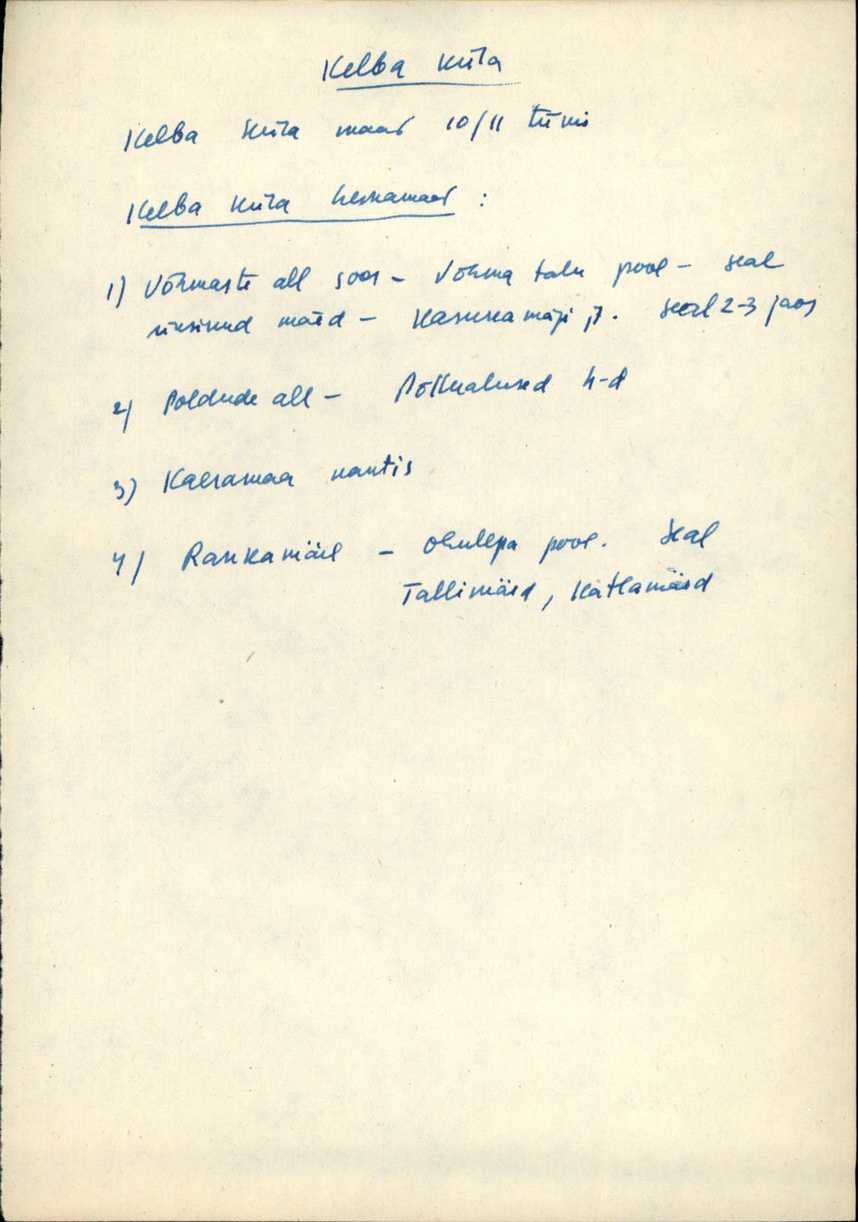 Kelba küla
Kelba küla maad 10/11 tükis
Kelba küla heinamaad :
1) Võhmaste all soos - Võhma talu pool - seal
üksikud mäed - Kasukamägi jt. seal 2-3 jaos
2) Poldude all - Põllualused h-d
3) Kaeramaa nantis
4) Raukamäel - Ohulepa pool. Seal
Tallimäed, Katlamäed